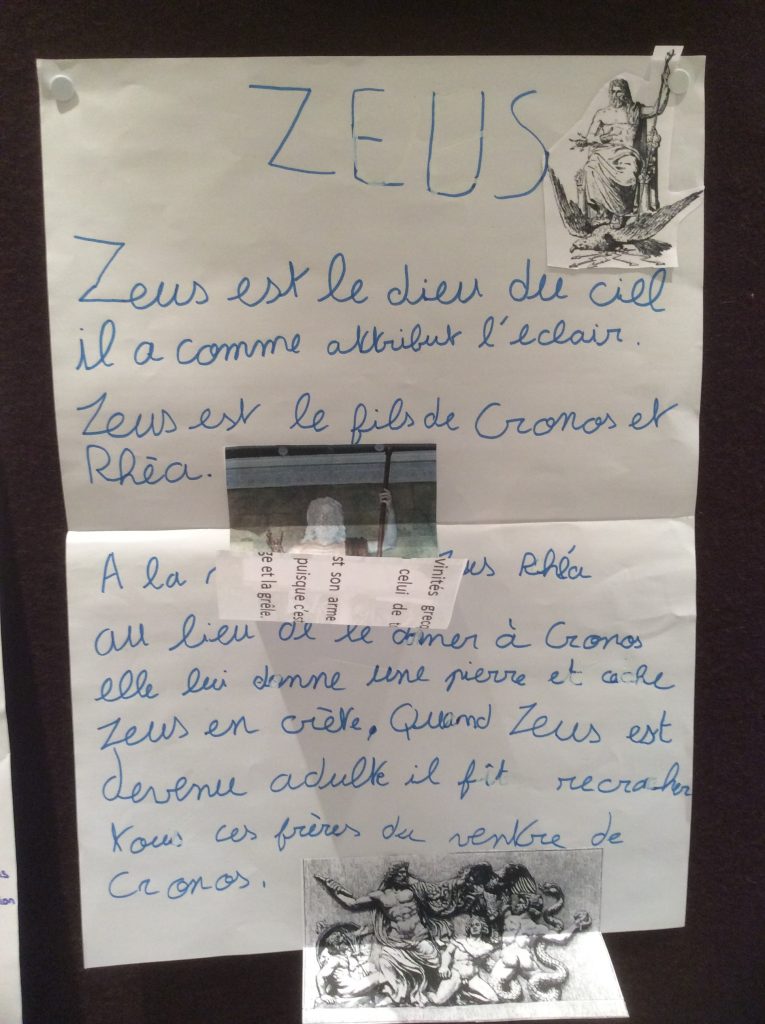 ZEUS
Zeus est le dieu du ciel
il a comme attribut l'eclair.
Zeus est le fils de Cronos et
Rhèa.
vinités
celui de
st son arme
puisque c'es
ge et la grêle.
A la Rhéa
au lieu de le donner à Cronos
elle lui donne une pierre et cache
Zeus en crète, Quand Zeus est
devenu adulte il fît recracher
tous ces frères du ventre de
Cronos.